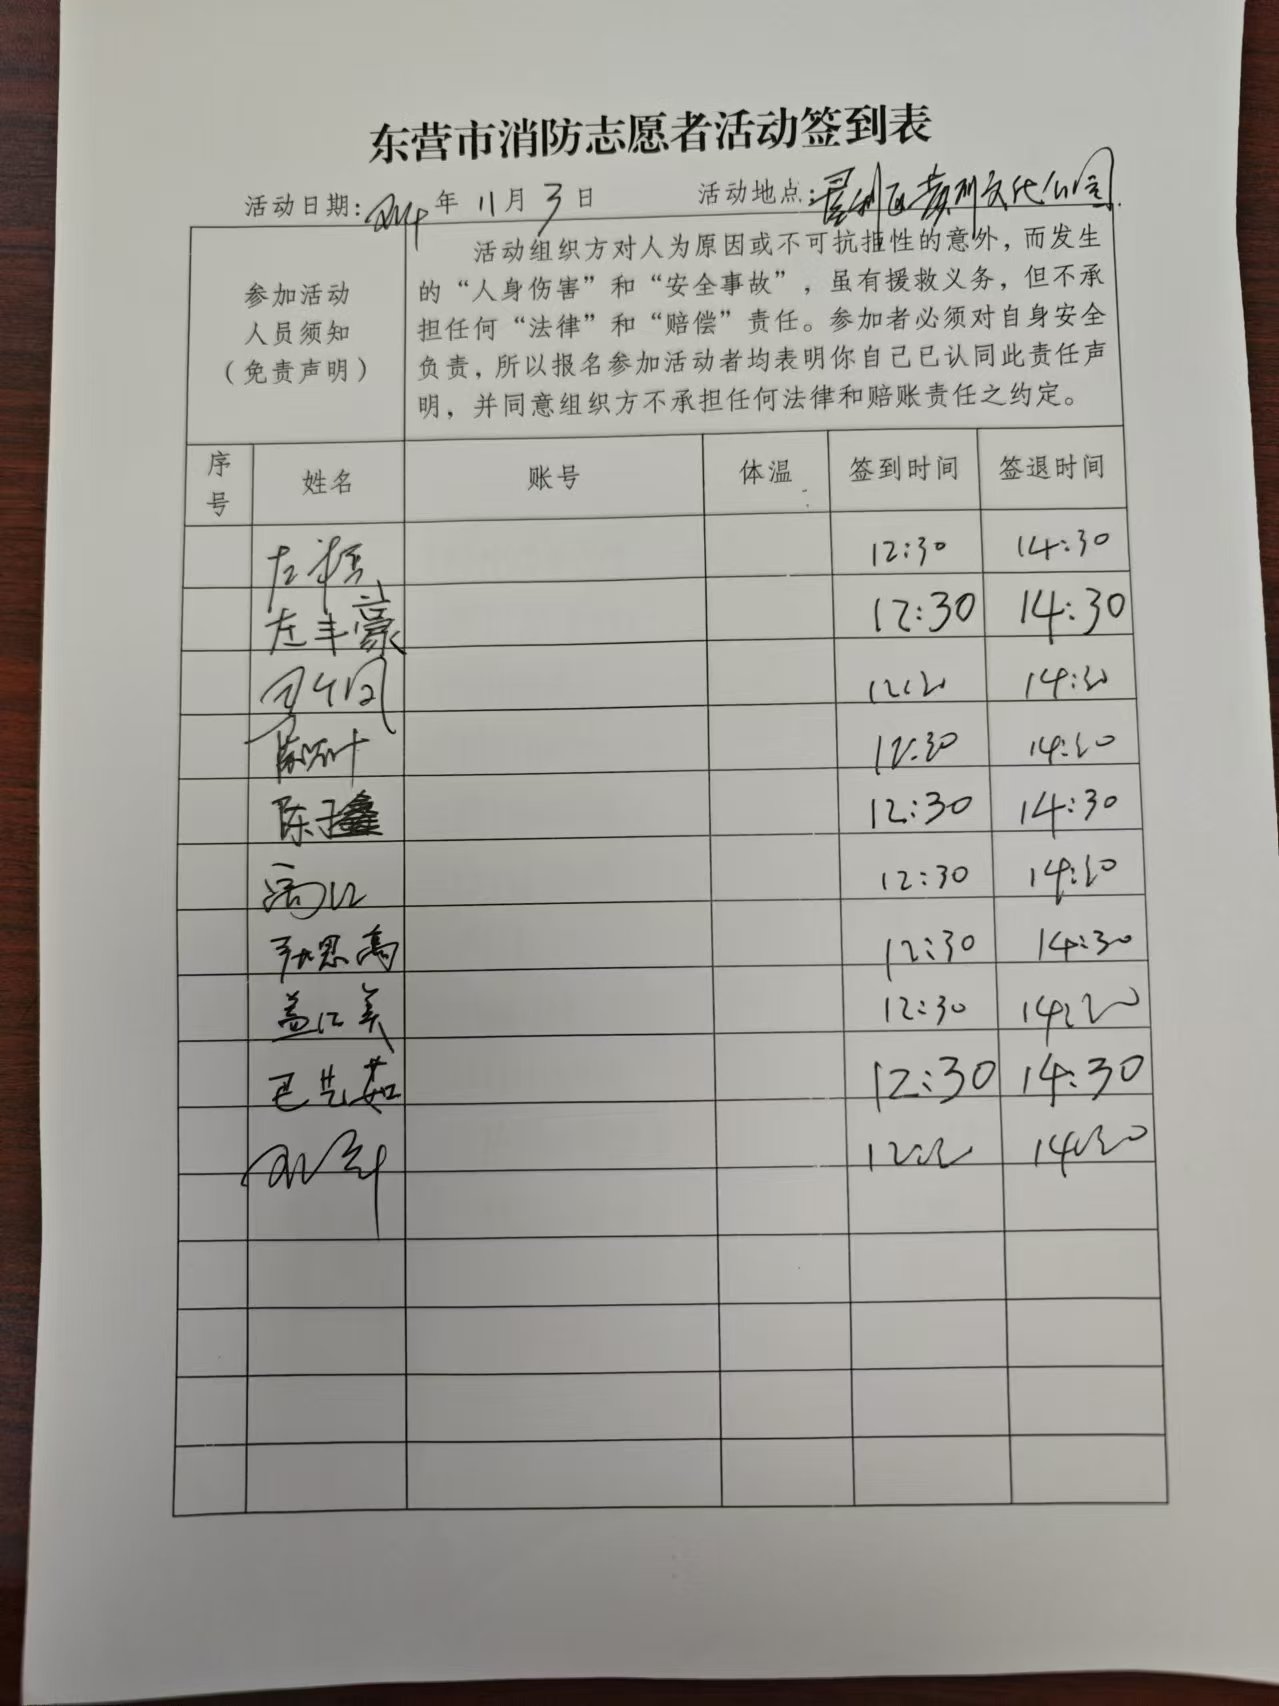 东营市消防志愿者活动签到表
活动日期：2024年11月3日 活动地点：垦利区黄河文化公园
参加活动
人员须知
（免责声明）
活动组织方对人为原因或不可抗拒性的意外，而发生
的“人身伤害”和“安全事故”，虽有援救义务，但不承
担任何“法律”和“赔偿”责任。参加者必须对自身安全
负责，所以报名参加活动者均表明你自己已认同此责任声
明，并同意组织方不承担任何法律和赔账责任之约定。
序号 姓名 账号 体温 签到时间 签退时间
12:30 14:30
左丰豪 12:30 14:30
12:30 14:30
12:30 14:30
陈子鑫 12:30 14:30
12:30 14:30
张思高 12:30 14:30
盖江美 12:30 14:30
巴艺茹 12:30 14:30
12:30 14:30